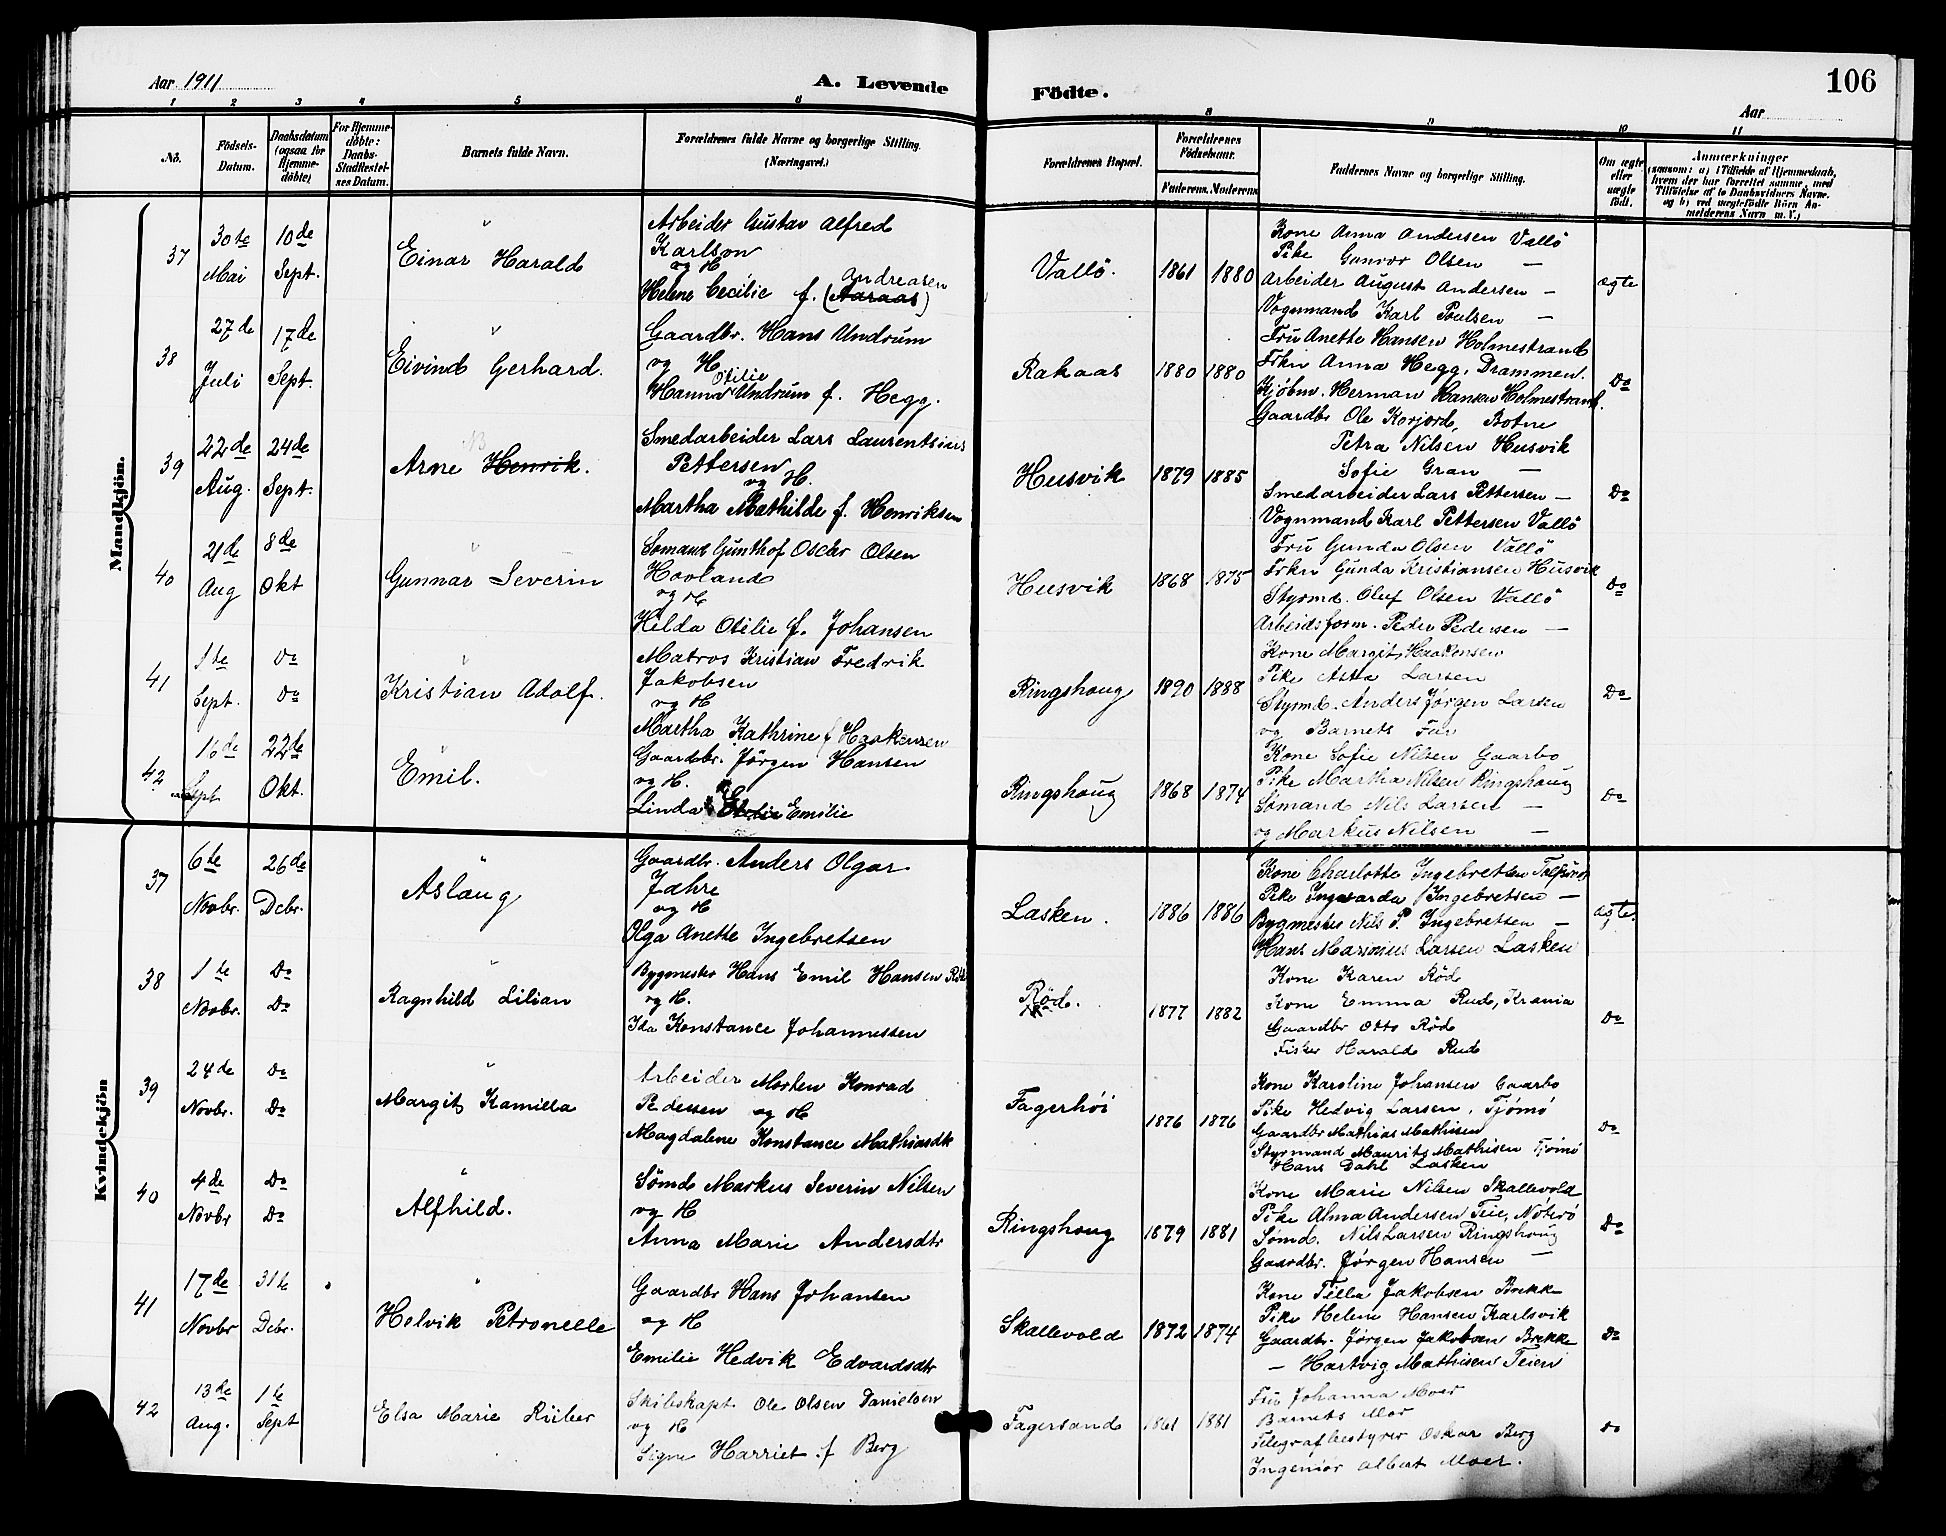 Aar 1911
A. Levende Födte.
Aar
106
1 2 3 4 5 6 8 9 10 11
No.
Födsels-Datum.
Daabsdatum (ogsaa for Hjemme-döbte)
For Hjemme-döbte: Daabs-Stadfæstel-ses Datum.
Barnets fulde Navn.
Forældrenes fulde Navne og borgerlige Stilling. (Næringsvei.)
Forældrenes Bopæl.
Forældrenes Födselsaar.
Faderens. Moderens.
Faddernes Navne og borgerlige Stilling.
Om ægte eller uægte födt.
Anmærkninger
(saasom: a) i Tilfælde af Hjemmedaab, hvem der har forrettet samme, med Tilföielse af to Daabsvidners Navne. og b) ved uægtefödte Börn An-melderens Navn m. V.)
Mandkjön.
37
30te Mai
10de Sept.
Einar Harald
Arbeider Gustav Alfred
Karlson
og H
Andreasen
Helene Cecilie f. (Aaraas)
Vallö.
1861 1880
Kone Anna Andersen Vallö
Pike Gunvor Olsen —
Arbeider August Andersen —
Vognmand Karl Poulsen —
ægte
38
27de Juli
17de Sept.
Eivind Gerhard.
Gaardbr. Hans Undrum
og H
Otilie
Hanna Undrum f. Hegg.
Rakaas
1880 1880
Fru Anette Hansen Holmestrand
Frkn Anna Hegg, Drammen.
Kjøbm. Herman Hansen Holmestrand.
Gaardbr Ole Korjord, Botne
Do
39
22de Aug.
24de Sept.
Arne Henrik.
Smedarbeider Lars Laurentsius
Pettersen
og H.
Martha Mathilde f. Henriksen
Husvik
1879 1885
Petra Nilsen Husvik
Sofie Gran —
Smedarbeider Lars Pettersen —
Vognmand Karl Pettersen Vallö
Do
40
21de Aug
8de Okt
Gunnar Severin
Sömand Gunthof Oscar Olsen
Hovland
og H
Hilda Otilie f. Johansen
Husvik
1868 1875
Fru Gunda Olsen Vallö
Frkn Gunda Kristiansen Husvik
Styrmd. Oluf Olsen Vallö
Arbeidsform. Peder Pedersen —
Do
41
1te Sept.
Do Do
Kristian Adolf.
Matros Kristian Fredrik
Jakobsen
og H
Martha Kathrine f Haakensen
Ringshoug
1890 1888
Kone Margit Haakensen
Pike Asta Larsen
Styrmd. Anders Jørgen Larsen
og Barnets Far
Do
42
16de Sept
22de Okt.
Emil.
Gaardbr. Jørgen Hansen
og H.
Linda Emilie
Ringshoug
1868 1874
Kone Sofie Nilsen Gaarbo
Pike Martha Nilsen Ringshoug
Sömand Nils Larsen —
og Markus Nilsen —
Do
Kvindekjön
37
6te Novbr.
26de Debr.
Aslaug
Gaardbr. Anders Olgar
Jahre
og H
Olga Anette Ingebretsen
Lasken.
1886 1886
Kone Charlotte Ingebretsen
Pike Ingvarda Ingebretsen —
Bygmester Nils P. Ingebretsen —
Hans Marinius Larsen Lasken
ægte
38
1te Novbr.
Do Do
Ragnhild Lilian
Bygmester Hans Emil Hansen
og H.
Ida Konstance Johannessen
Röd.
1877 1882
Kone Karen Röd
Kone Emma Rud, Krania
Gaardbr Otto Röd
Fisker Harald Rud
Do
39
24de Novbr.
Do Do
Margit Kamilla
Arbeider Morten Konrad
Pedersen og H
Magdalene Konstance Mathiasdtr
Fagerhöi
1876 1876
Kone Karoline Johansen Gaarbo
Pike Hedvig Larsen, Tjömö
Gaardbr Mathias Mathisen
Styrmand Maurits Mathisen Tjömö
Hans Dahl Lasken
Do
40
4de Novbr
Do Do
Alfhild.
Sömd Markus Severin Nilsen
og H
Anna Marie Andersdtr
Ringshoug
1879 1881
Kone Marie Nilsen Skallevold
Pike Alma Andersen Teie, Nöterö
Sömd. Nils Larsen Ringshoug
Gaardbr. Jørgen Hansen —
Do
41
17de Novbr
31te Debr.
Helvik Petronelle
Gaardbr Hans Johansen
og H
Emilie Hedvik Edvardsdtr
Skallevold
1872 1874
Kone Tilla Jakobsen Brekke
Pike Helene Hansen Karlsvik
Gaardbr. Jørgen Jakobsen Brekke
— Hartvig Mathisen Teien
Do
42
13de Aug.
1te Sept
Elsa Marie Rüber
Skibskapt. Ole Olsen Danielsen
og H
Signe Harriet f Berg
Fagersand
1861 1881
Fru Johanna Moer
Barnets Mor
Telegrafbestyrer Oskar Berg
Ingeniör Albert Moer.
Do